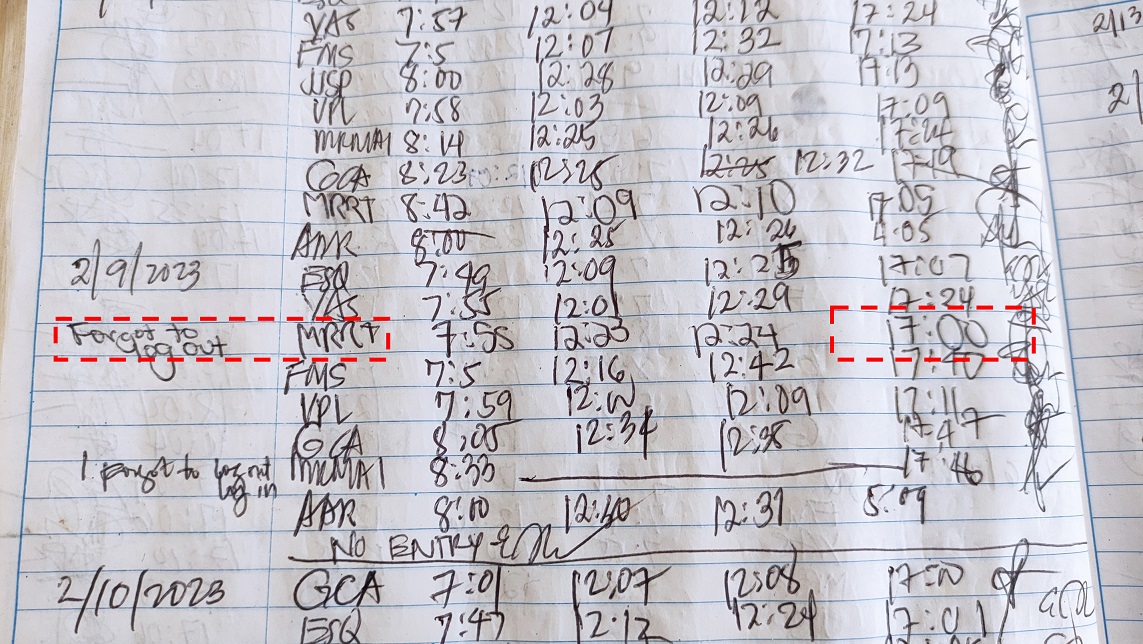 YAS 7:57 12:04 12:12 17:24
FMS 7:5 12:07 12:32 17:13
WSP 8:00 12:28 12:29 17:13
VPL 7:58 12:03 12:09 17:09
MKMA1 8:14 12:25 12:26 17:24
GCA 8:23 12:25 12:25 12:32 17:19
MRRT 8:42 12:09 12:10 17:05
AAR 8:00 12:25 12:26 4:05
2/9/2023 ESQ 7:49 12:09 12:25 17:07
YAS 7:55 12:01 12:29 17:24
Forgot to log out MRRT 7:55 12:23 12:24 17:00
FMS 7:5 12:16 12:42 17:40
VPL 7:59 12:10 12:09 17:11
GCA 8:05 12:34 12:35 17:47
I forgot to log out log in MKMA1 8:33 17:46
AAR 8:10 12:30 12:31 5:09
NO ENTRY
2/10/2023 GCA 7:01 12:07 12:08 17:10
ESQ 7:47 12:12 12:24 17:01